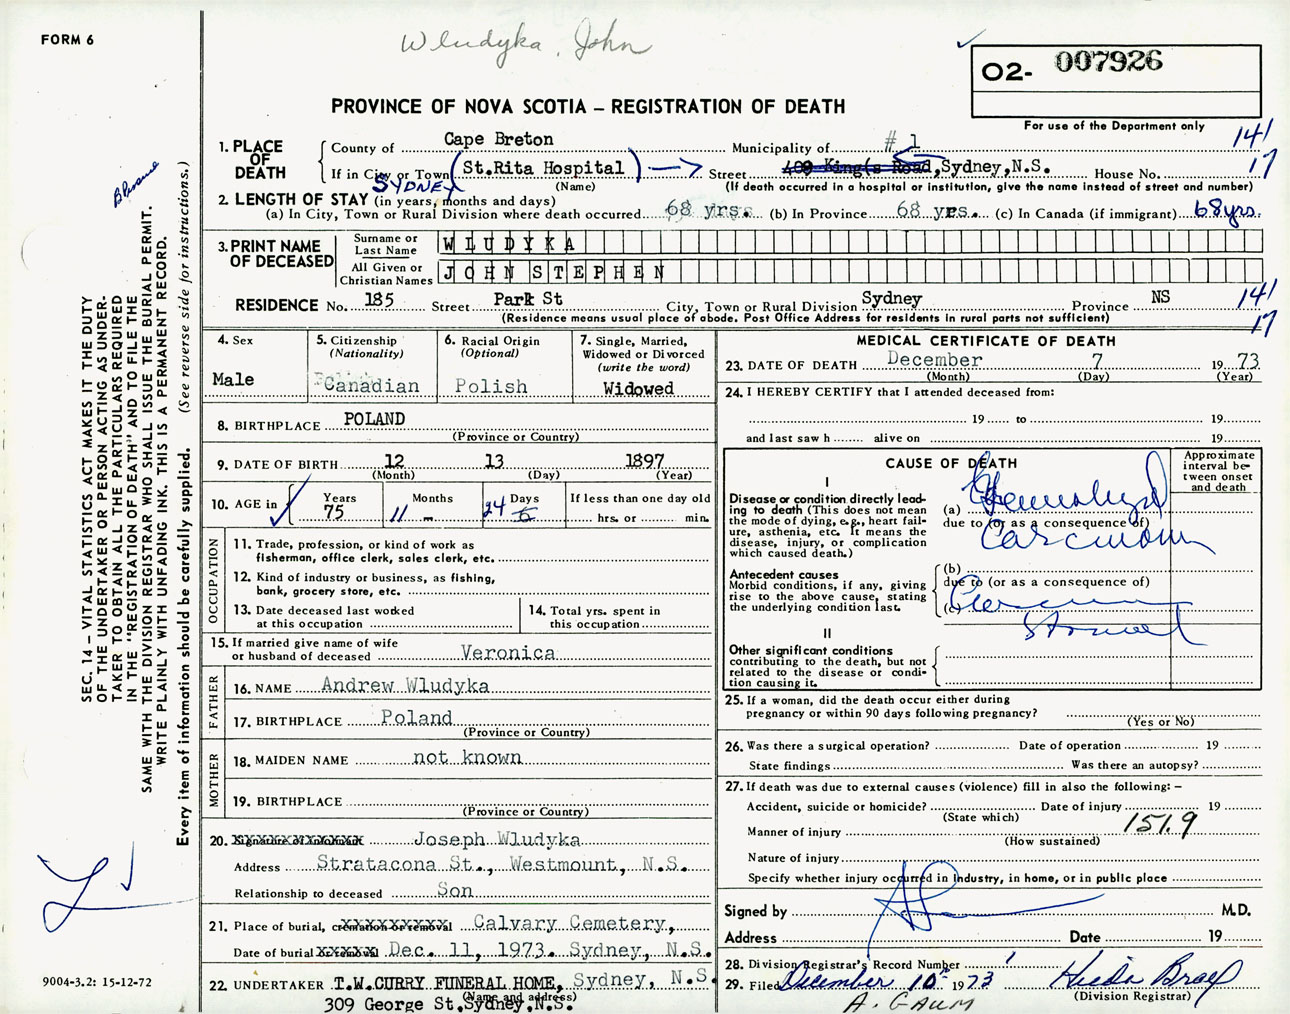 FORM 6
Wludyka, John
02- 007926
PROVINCE OF NOVA SCOTIA – REGISTRATION OF DEATH
For use of the Department only
1. PLACE OF DEATH
County of Cape Breton Municipality of # 1 141
If in City or Town SYDNEY (St.Rita Hospital) Street 409 King(s Road, Sydney,N.S. House No. 17
(Name) (If death occurred in a hospital or institution, give the name instead of street and number)
2. LENGTH OF STAY (in years, months and days)
(a) In City, Town or Rural Division where death occurred 68 yrs. (b) In Province 68 yrs. (c) In Canada (if immigrant) 68 yrs.
3. PRINT NAME OF DECEASED
Surname or Last Name WLUDYKA
All Given or Christian Names JOHN STEPHEN
RESIDENCE No. 185 Street Park St City, Town or Rural Division Sydney Province NS 141
(Residence means usual place of abode. Post Office Address for residents in rural parts not sufficient) 17
4. Sex
Male
5. Citizenship
(Nationality)
Canadian
6. Racial Origin
(Optional)
Polish
7. Single, Married,
Widowed or Divorced
(write the word)
Widowed
8. BIRTHPLACE POLAND
(Province or Country)
9. DATE OF BIRTH 12 13 1897
(Month) (Day) (Year)
10. AGE in Years 75 Months 11 - Days 24 If less than one day old
hrs. or min.
OCCUPATION
11. Trade, profession, or kind of work as
fisherman, office clerk, sales clerk, etc.
12. Kind of industry or business, as fishing,
bank, grocery store, etc.
13. Date deceased last worked
at this occupation
14. Total yrs. spent in
this occupation
15. If married give name of wife
or husband of deceased Veronica
FATHER
16. NAME Andrew Wludyka
17. BIRTHPLACE Poland
(Province or Country)
MOTHER
18. MAIDEN NAME not known
19. BIRTHPLACE
(Province or Country)
20. Signature of informant Joseph Wludyka
Address Stratacona St., Westmount, N.S.
Relationship to deceased Son
21. Place of burial, cremation or removal Calvary Cemetery,
Date of burial or removal Dec. 11, 1973. Sydney, N.S.
22. UNDERTAKER T.W.CURRY FUNERAL HOME, Sydney, N.S.
(Name and address)
309 George St.Sydney,N.S.
MEDICAL CERTIFICATE OF DEATH
23. DATE OF DEATH December 7 1973
(Month) (Day) (Year)
24. I HEREBY CERTIFY that I attended deceased from:
19 to 19
and last saw h alive on 19
CAUSE OF DEATH
Approximate
interval be-
tween onset
and death
I
Disease or condition directly lead-
ing to death (This does not mean
the mode of dying, e.g., heart fail-
ure, asthenia, etc. It means the
disease, injury, or complication
which caused death.)
(a)
due to (or as a consequence of)
Carcinoma
Antecedent causes
Morbid conditions, if any, giving
rise to the above cause, stating
the underlying condition last.
(b)
due to (or as a consequence of)
(c)
II
Other significant conditions
contributing to the death, but not
related to the disease or condi-
tion causing it.
25. If a woman, did the death occur either during
pregnancy or within 90 days following pregnancy?
(Yes or No)
26. Was there a surgical operation? Date of operation 19
State findings Was there an autopsy?
27. If death was due to external causes (violence) fill in also the following: –
Accident, suicide or homicide? Date of injury 19
(State which)
Manner of injury 151.9
(How sustained)
Nature of injury
Specify whether injury occurred in Industry, in home, or in public place
Signed by M.D.
Address Date 19
28. Division Registrar's Record Number
29. Filed December 10th 1973
(Division Registrar)
A. GAUM
SEC. 14 – VITAL STATISTICS ACT MAKES IT THE DUTY
OF THE UNDERTAKER OR PERSON ACTING AS UNDER-
TAKER TO OBTAIN ALL THE PARTICULARS REQUIRED
IN THE "REGISTRATION OF DEATH" AND TO FILE THE
SAME WITH THE DIVISION REGISTRAR WHO SHALL ISSUE THE BURIAL PERMIT.
WRITE PLAINLY WITH UNFADING INK. THIS IS A PERMANENT RECORD.
Every item of information should be carefully supplied. (See reverse side for instructions.)
9004-3.2: 15-12-72